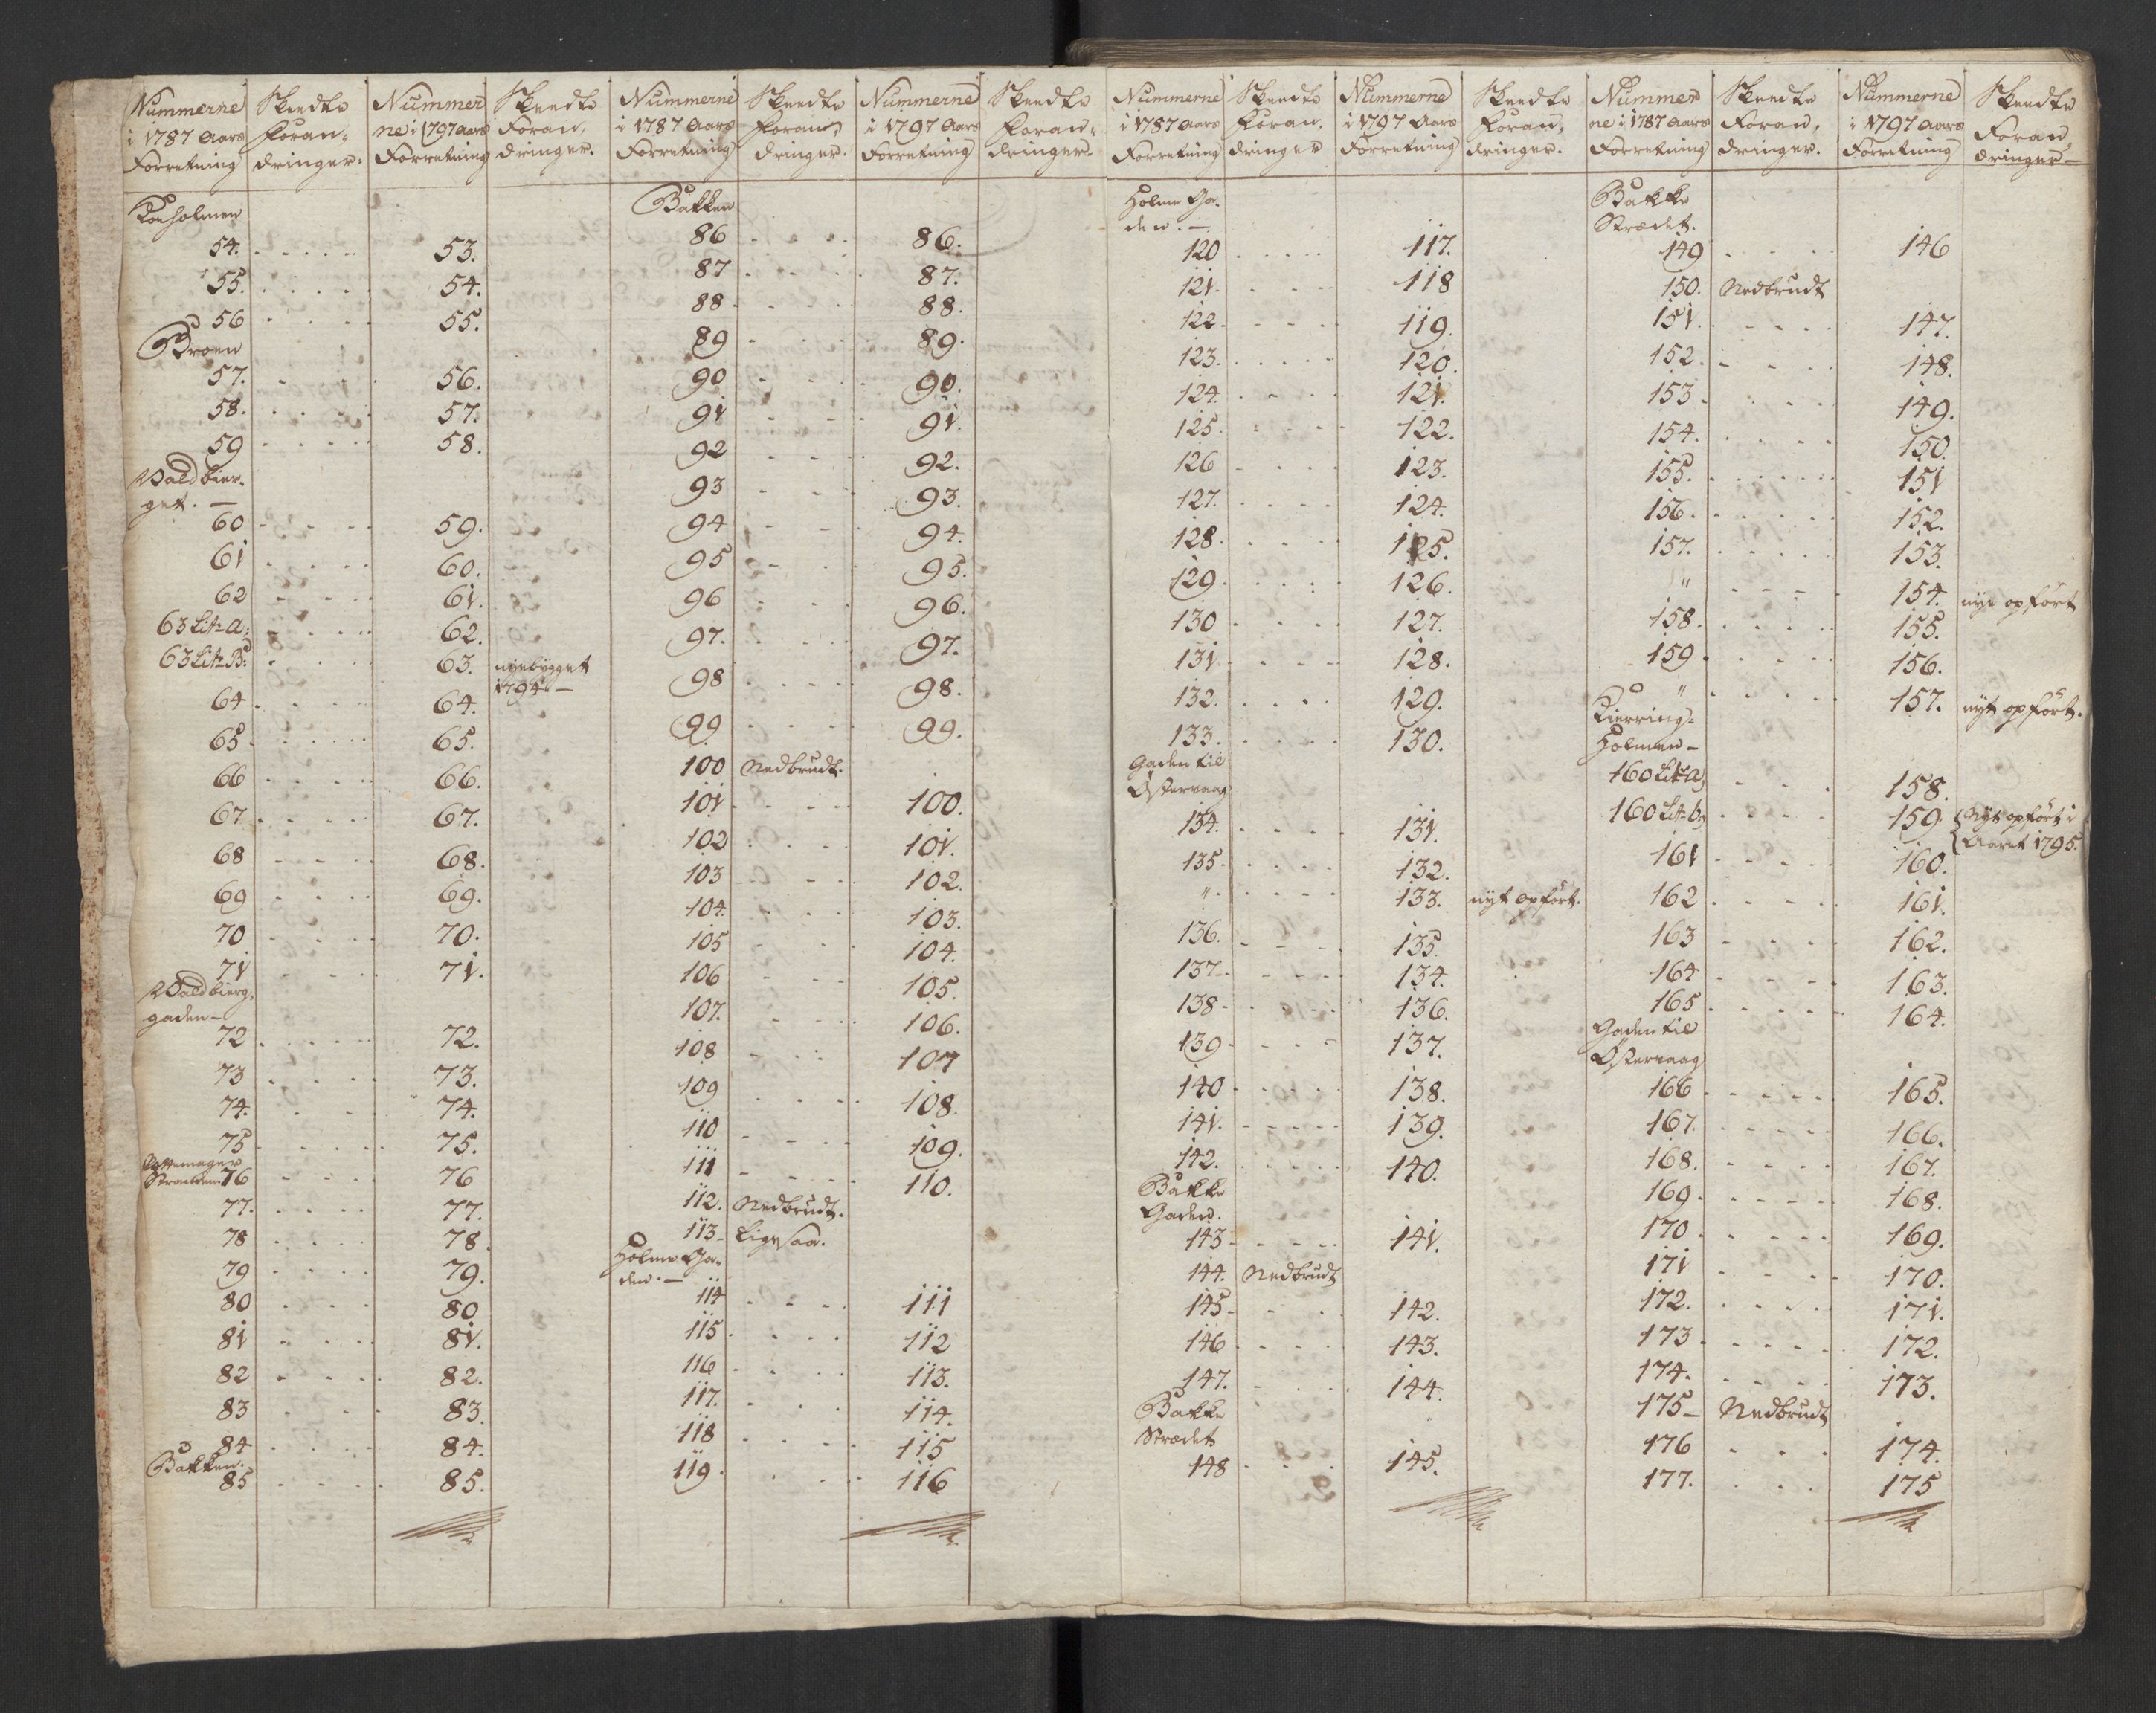 Nummerne i 1787 Aars Forretning | Skeedte Foran- dringer: | Nummer ne i 1797 Aars Forretning | Skeedte Foran, dringer.
Koeholmen
54. | 53.
55. | 54.
56 | 55.
Broen
57. | 56.
58. | 57.
59 | 58.
Waldbier-
get. —
60 | 59.
61 | 60.
62 | 61.
63 Litr a: | 62.
63 Litr B: | 63. nÿebÿgget
1794 —
64 | 64.
65 | 65.
66 | 66.
67 | 67.
68 | 68.
69 | 69.
70 | 70.
71 | 71.
Waldbierg,
gaden —
72 | 72.
73 | 73.
74. | 74.
75 | 75.
Pottemager
Stranden 76 | 76
77. | 77.
78 | 78.
79 | 79.
80 | 80
81 | 81.
82 | 82.
83 | 83.
84 | 84.
Bakken.
85 | 85.
Nummerne i 1787 Aars Forretning | Skeedte Foran, dringer. | Nummerne i 1797 Aars Forretning | Skeedte Foran, dringer.
Bakken
86 | 86.
87 | 87.
88 | 88.
89 | 89.
90 | 90.
91 | 91.
92 | 92.
93 | 93.
94 | 94.
95 | 95.
96 | 96.
97. | 97.
98 | 98.
99 | 99.
100 Nedbrudt.
101 | 100.
102 | 101.
103 | 102.
104. | 103.
105 | 104.
106 | 105.
107. | 106.
108 | 107
109 | 108.
110 | 109.
111 | 110.
112. Nedbrudt.
113 — Ligesaa.
Holme Ga-
den. —
114 | 111
115. | 112
116 | 113.
117. | 114.
118 | 115
119 | 116
Nummerne i 1787 Aars Forretning | Skeedte Foran, dringer | Nummerne i 1797 Aars Forretning | Skeedte Foran, dringer.
Holme Ga-
den. —
120 | 117.
121. | 118
122 | 119.
123. | 120.
124. | 121.
125. | 122.
126 | 123.
127. | 124.
128. | 125.
129 | 126.
130 | 127.
131 | 128.
132. | 129.
133. | 130.
Gaden til
Østervaag
134. | 131.
135 | 132.
" | 133. nÿt opfört.
136. | 135.
137 | 134.
138 | 136.
139 | 137.
140 | 138.
141. | 139.
142. | 140.
Bakke
Gaden.
143 | 141.
144. Nedbrudt
145 | 142.
146 | 143.
147. | 144.
Bakke
Strædet
148 | 145.
Nummer ne i 1787 Aars Forretning | Skeedte Foran, dringer. | Nummerne i 1797 Aars Forretning | Skeedte Foran, dringer —
Bakke
Strædet.
149 | 146
150. Nedbrudt
151. | 147.
152. | 148.
153 | 149.
154. | 150.
155. | 151
156 | 152.
157. | 153.
" | 154. nÿt opfört
158. | 155.
159 | 156.
" | 157. nÿt opfört.
Kierring-
Holmen —
160 Litr a, | 158.
160 Litr b, | 159. Nÿt opfört i
Aaret 1795.
161 | 160.
162 | 161.
163 | 162.
164 | 163.
165 | 164.
Gaden til
Østervaag
166 | 165.
167. | 166.
168. | 167.
169 | 168.
170 | 169.
171 | 170.
172. | 171.
173 | 172.
174. | 173.
175 — Nedbrudt
176 | 174.
177. | 175